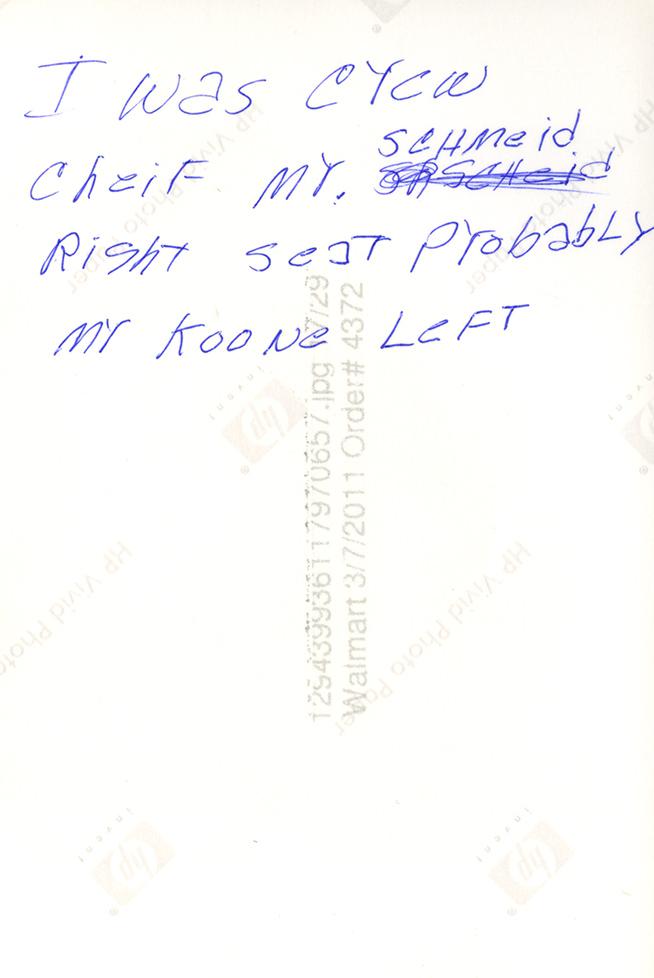 I was crew
SCHMeid
Cheif Mr.
Right seat Probably
Mr Koone Left
129439936117970657.jpg 7/29
Walmart 3/7/2011 Order# 4372
HP Vivid Photo Paper
HP Vivid Photo Paper
HP Vivid Photo Paper
HP Vivid Photo Paper
hp
invent
hp
invent
hp
invent